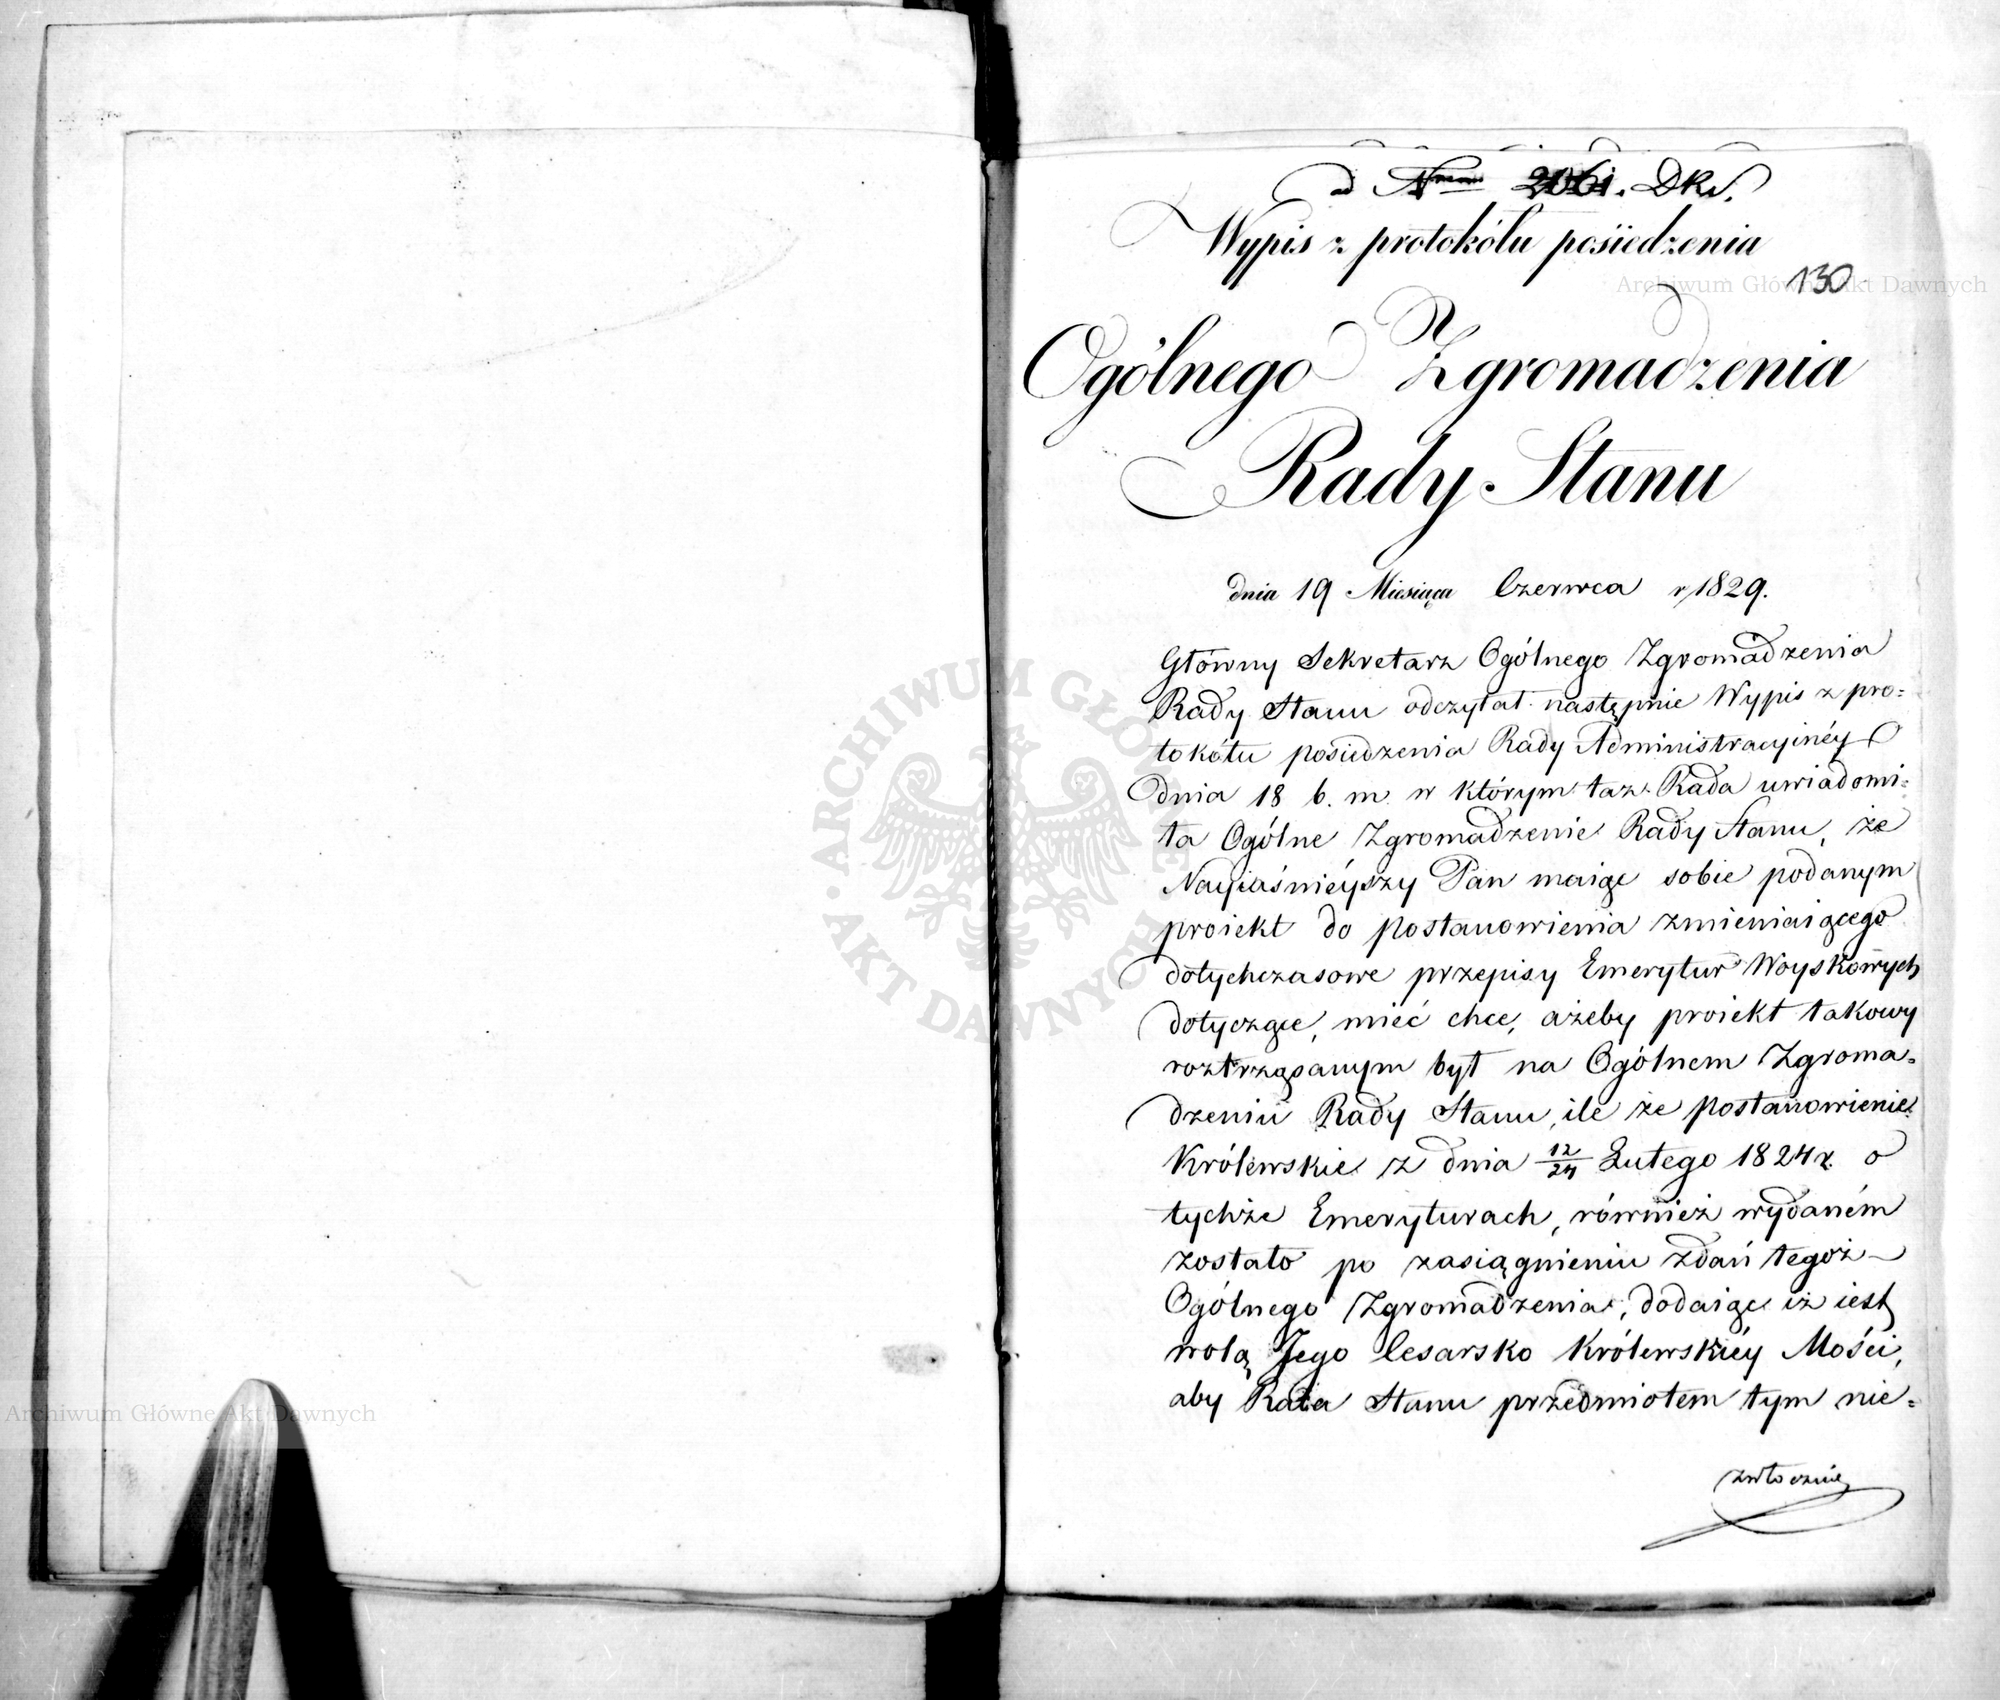 ad Nrum 2061. DKs.
Wypis z protokółu posiedzenia
130
Ogólnego Zgromadzenia
Rady Stanu
dnia 19 Miesiąca Czerwca r 1829.
Główny Sekretarz Ogólnego Zgromadzenia
Rady Stanu odczytał następnie Wypis z pro=
tokółu posiedzenia Rady Administracyinéy
dnia 18 b. m. w którym taż Rada uwiadomi=
ła Ogólne Zgromadzenie Rady Stanu, że
Nayiaśnieyszy Pan maiąc sobie podanym
proiekt do postanowienia zmieniaiącego
dotychczasowe przepisy Emerytur Woyskowych
dotyczące, mieć chce, ażeby proiekt takowy
roztrząsanym był na Ogólnem Zgroma=
dzeniu Rady Stanu, ile że postanowienie
Królewskie z dnia 12/24 Lutego 1824 r. o
tychże Emeryturach, również wydaném
zostało po zasiągnieniu zdań tegoż
Ogólnego Zgromadzenia, dodaiąc iż iest
wolą Jego Cesarsko Królewskiéy Mości,
aby Rada Stanu przedmiotem tym nie=
zwłocznie
ARCHIWUM GŁÓWNE · AKT DAWNYCH ·
Archiwum Główne Akt Dawnych
Archiwum Główne Akt Dawnych